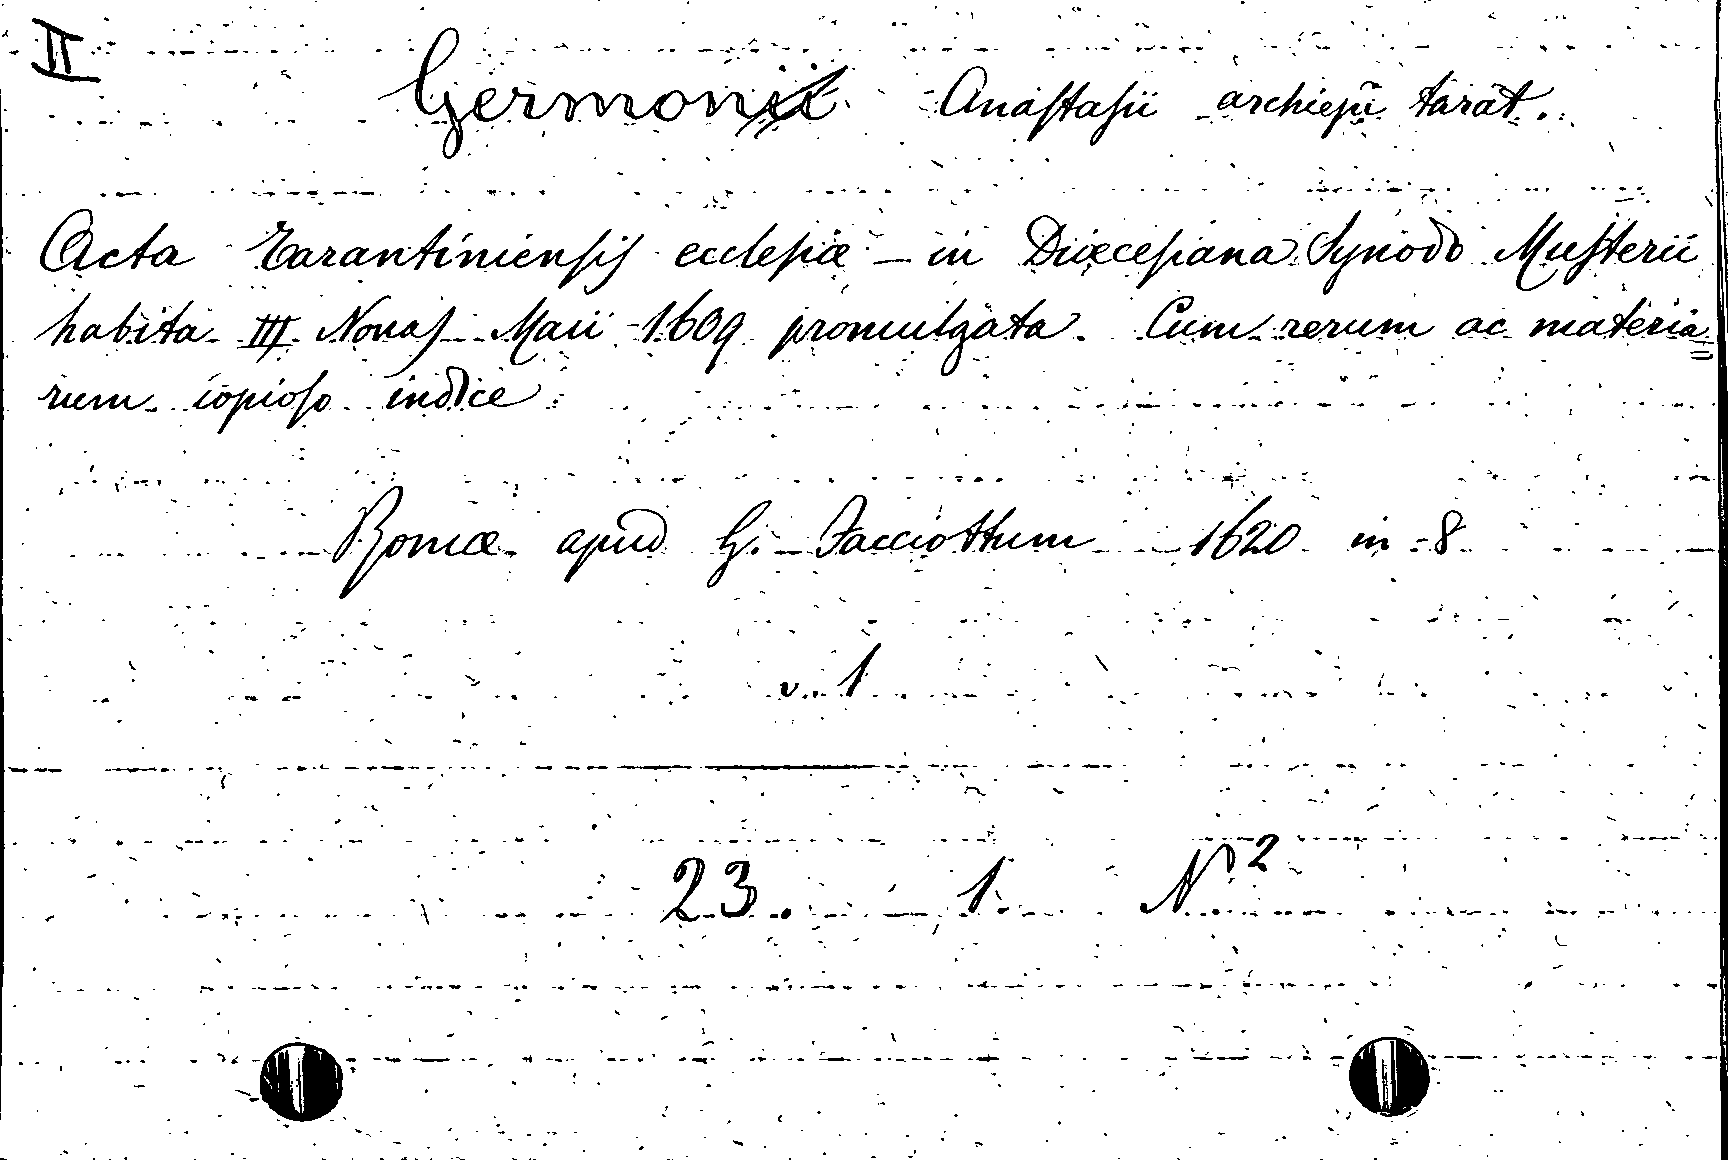 II
Germonii Anastasii archiepũ tarãt.
Acta Tarantiniensis ecclesiæ – in Diœcesiana Synodo Musterii
habita III Nonas Maii 1609 promulgata. Cum rerum ac materia=
rum copioso indice
Romæ apud G. Facciottum 1620 in 8
v. 1
23. 1 N 2